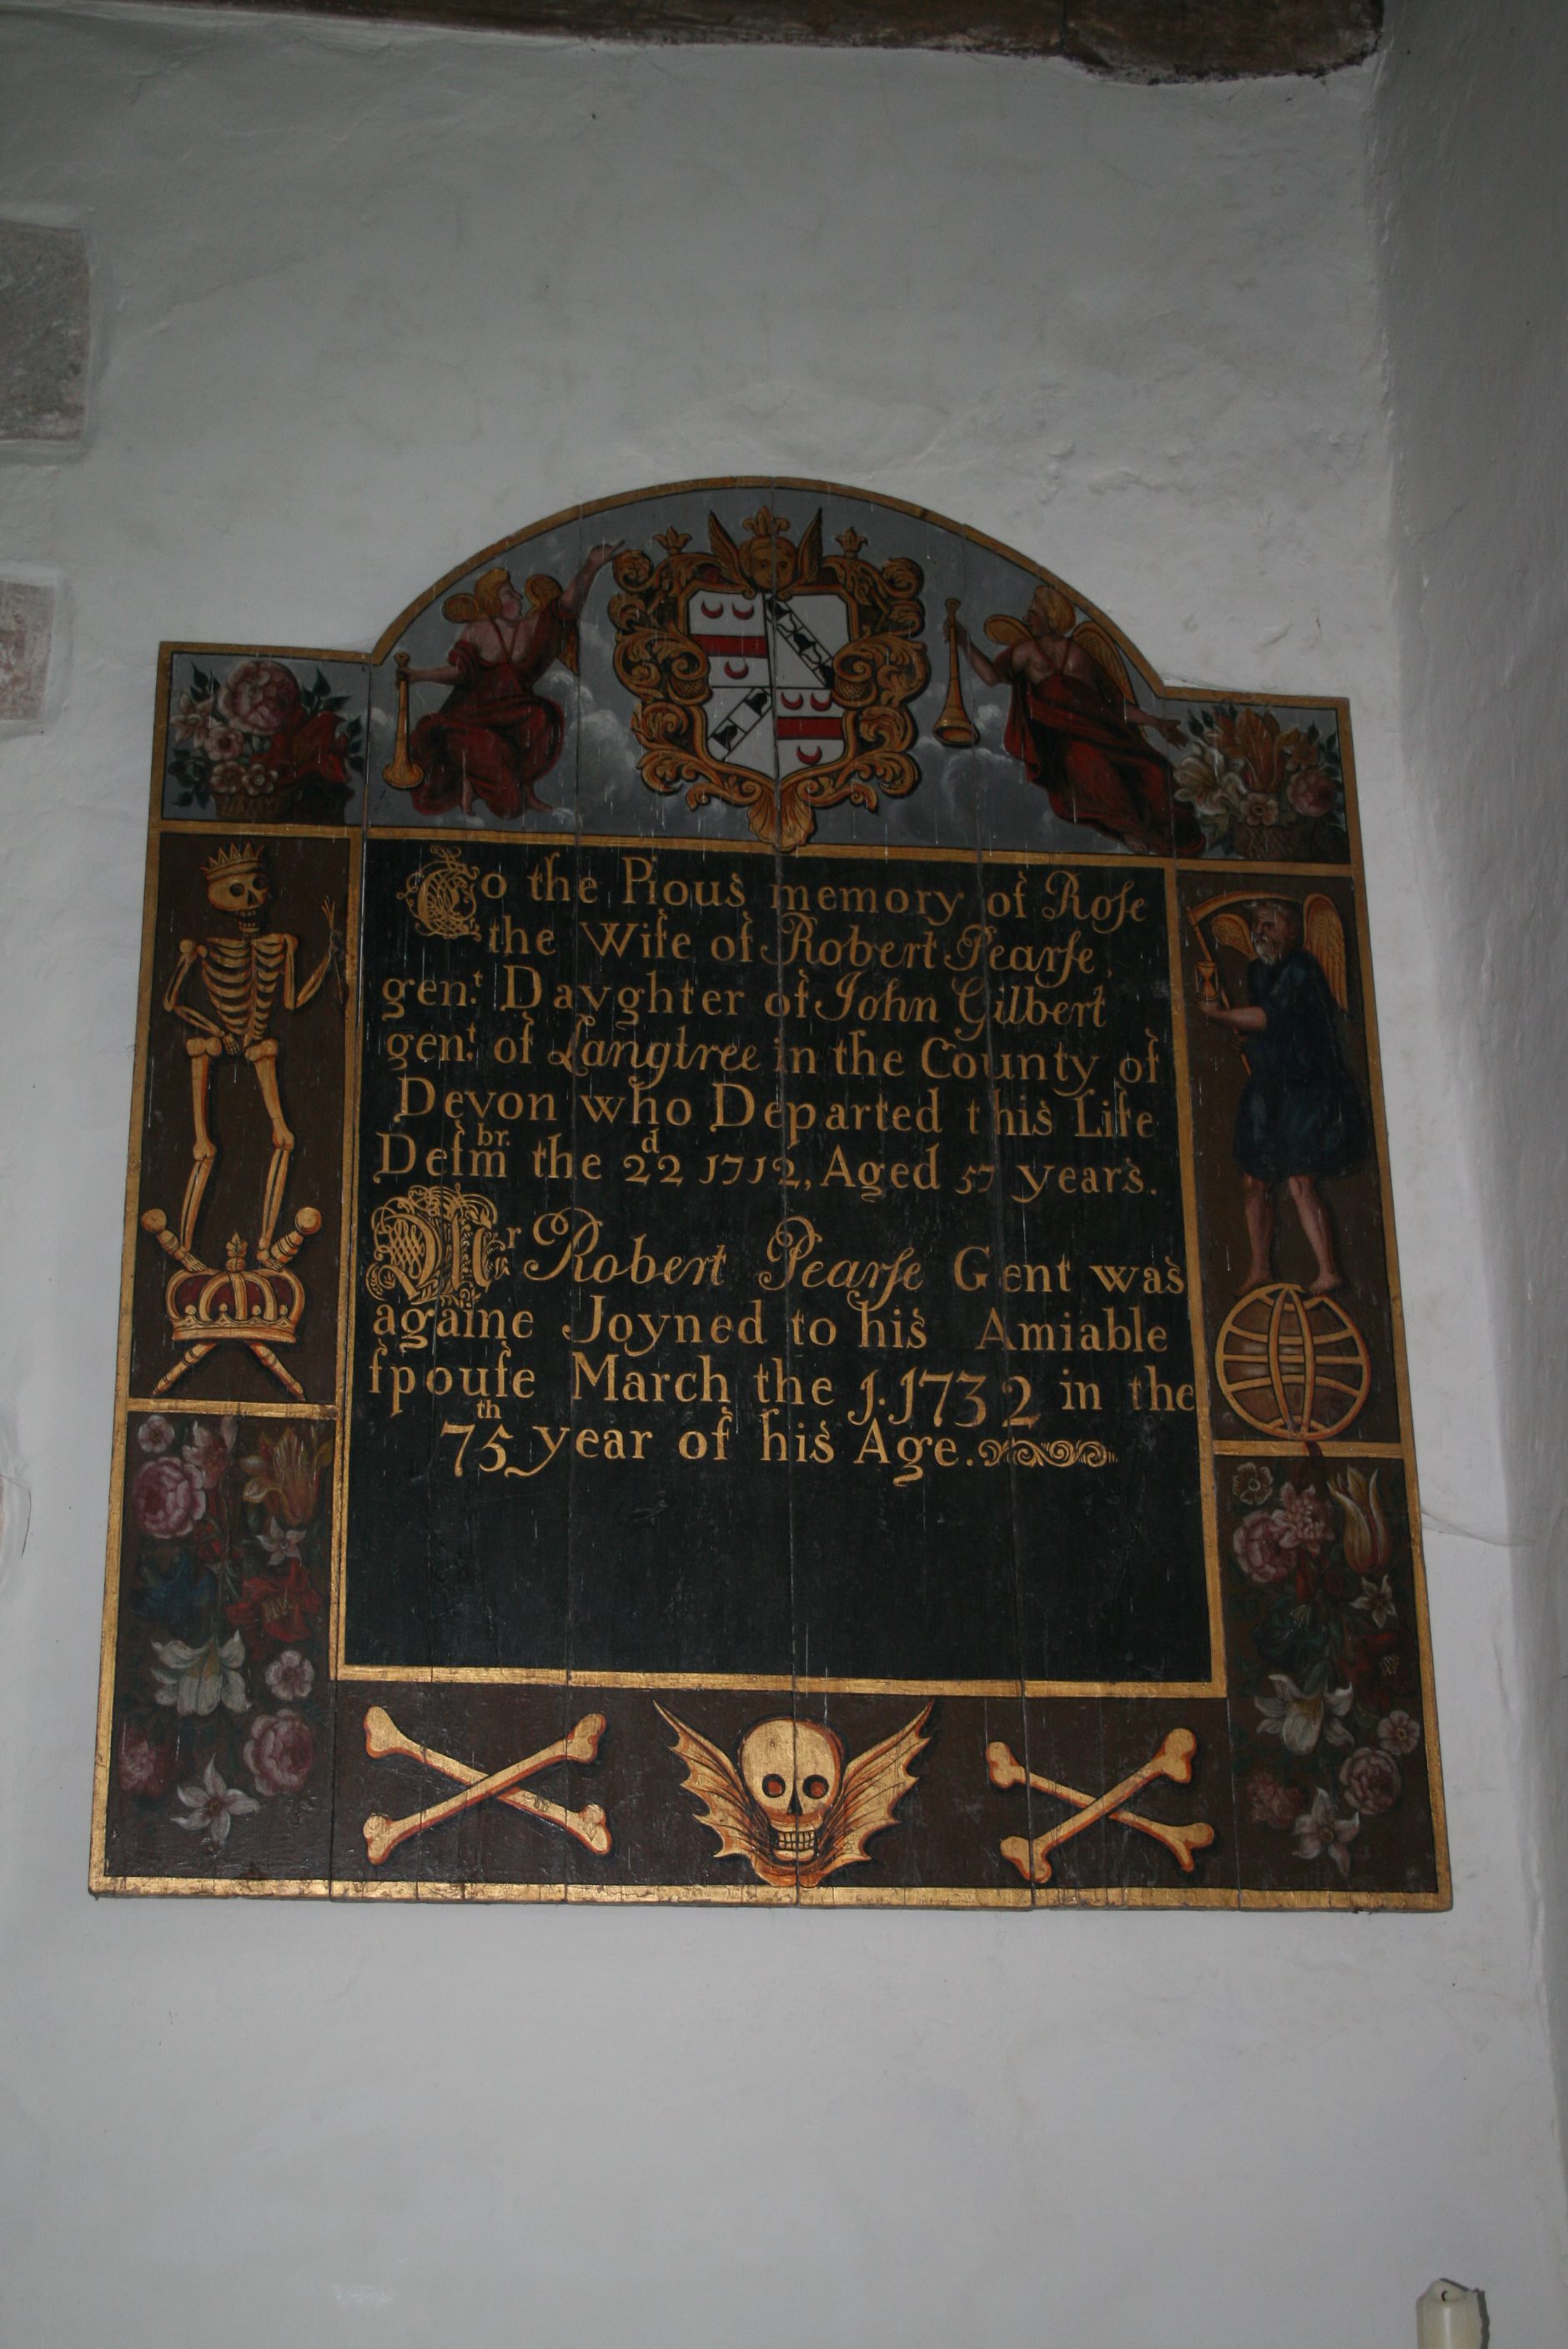 To the Pious memory of Roſe
the Wife of Robert Pearſe,
gen.t Davghter of John Gilbert
gen.t of Langtree in the County of
Devon who Departed this Life
Deſm br. the 22 d 1712, Aged 57 years.
Mr Robert Pearſe Gent was
againe Joyned to his Amiable
ſpouſe March the 1. 1732 in the
75th year of his Age.